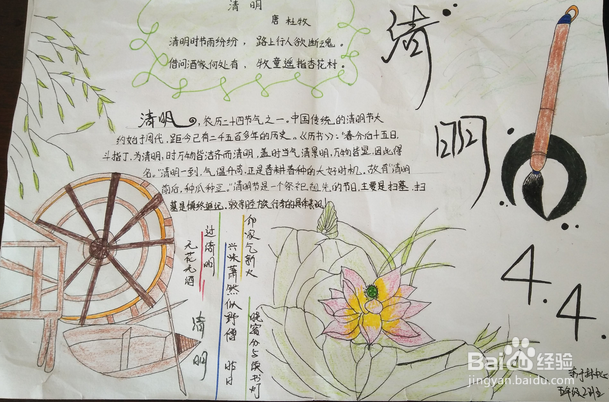 清明
唐 杜牧
清明时节雨纷纷，路上行人欲断魂。
借问酒家何处有，牧童遥指杏花村。
清明，农历二十四节气之一。中国传统的清明节大
约始于周代，距今已有二千五百多年的历史。《历书》：“春分后十五日，
斗指丁，为清明，时万物皆洁齐而清明，盖时当气清景明，万物皆显，因此得
名。”清明一到，气温升高，正是春耕春种的大好时机，故有“清明
前后，种瓜种豆。”清明节是一个祭祀祖先的节日，主要是扫墓，扫
墓是慎终追远、
清
明
4.4
无花无酒
过清明
兴味萧然似野僧
昨日
邻家乞新火
晓窗分与读书灯
清明
Baidu经验
jingyan.baidu.com